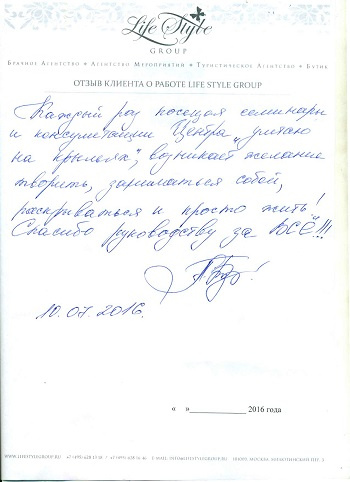 Life Style
GROUP
Брачное Агентство Агентство Мероприятий Туристическое Агентство Бутик
ОТЗЫВ КЛИЕНТА О РАБОТЕ LIFE STYLE GROUP
Каждый раз посещая семинары
и консультации Центра „улетаю
на крыльях“, возникает желание
творить, заниматься собой,
раскрываться и просто жить!
Спасибо руководству за ВСЁ!!!
10.07.2016.
« » 2016 года
WWW.LIFESTYLEGROUP.RU